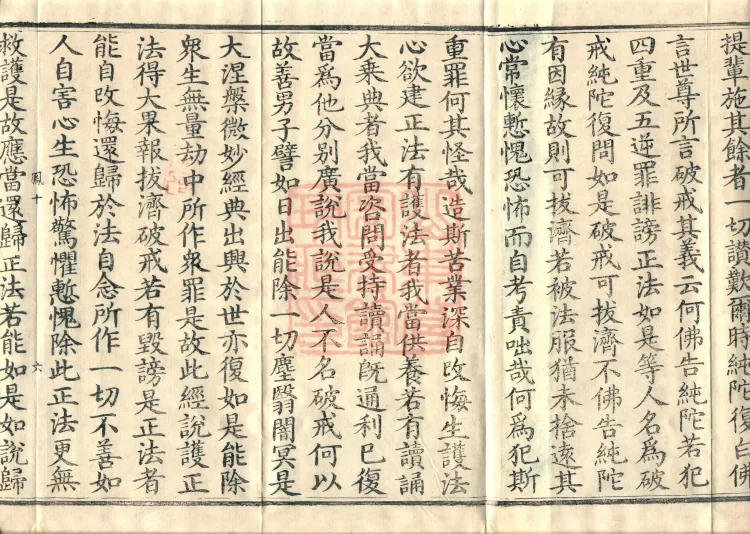 提輩施其餘者一切讚歎爾時純陀復白佛
言世尊所言破戒其義云何佛告純陀若犯
四重及五逆罪誹謗正法如是等人名爲破
戒純陀復問如是破戒可拔濟不佛告純陀
有因緣故則可拔濟若被法服猶未捨遠其
心常懷慙愧恐怖而自考責咄哉何爲犯斯
重罪何其怪哉造斯苦業深自改悔生護法
心欲建正法有護法者我當供養若有讀誦
大乘典者我當咨問受持讀誦旣通利已復
當爲他分別廣說我說是人不名破戒何以
故善男子譬如日出能除一切塵翳闇冥是
大涅槃微妙經典出興於世亦復如是能除
衆生無量劫中所作衆罪是故此經說護正
法得大果報拔濟破戒若有毀謗是正法者
能自改悔還歸於法自念所作一切不善如
人自害心生恐怖驚懼慙愧除此正法更無
鳳十 六
救護是故應當還歸正法若能如是如說歸